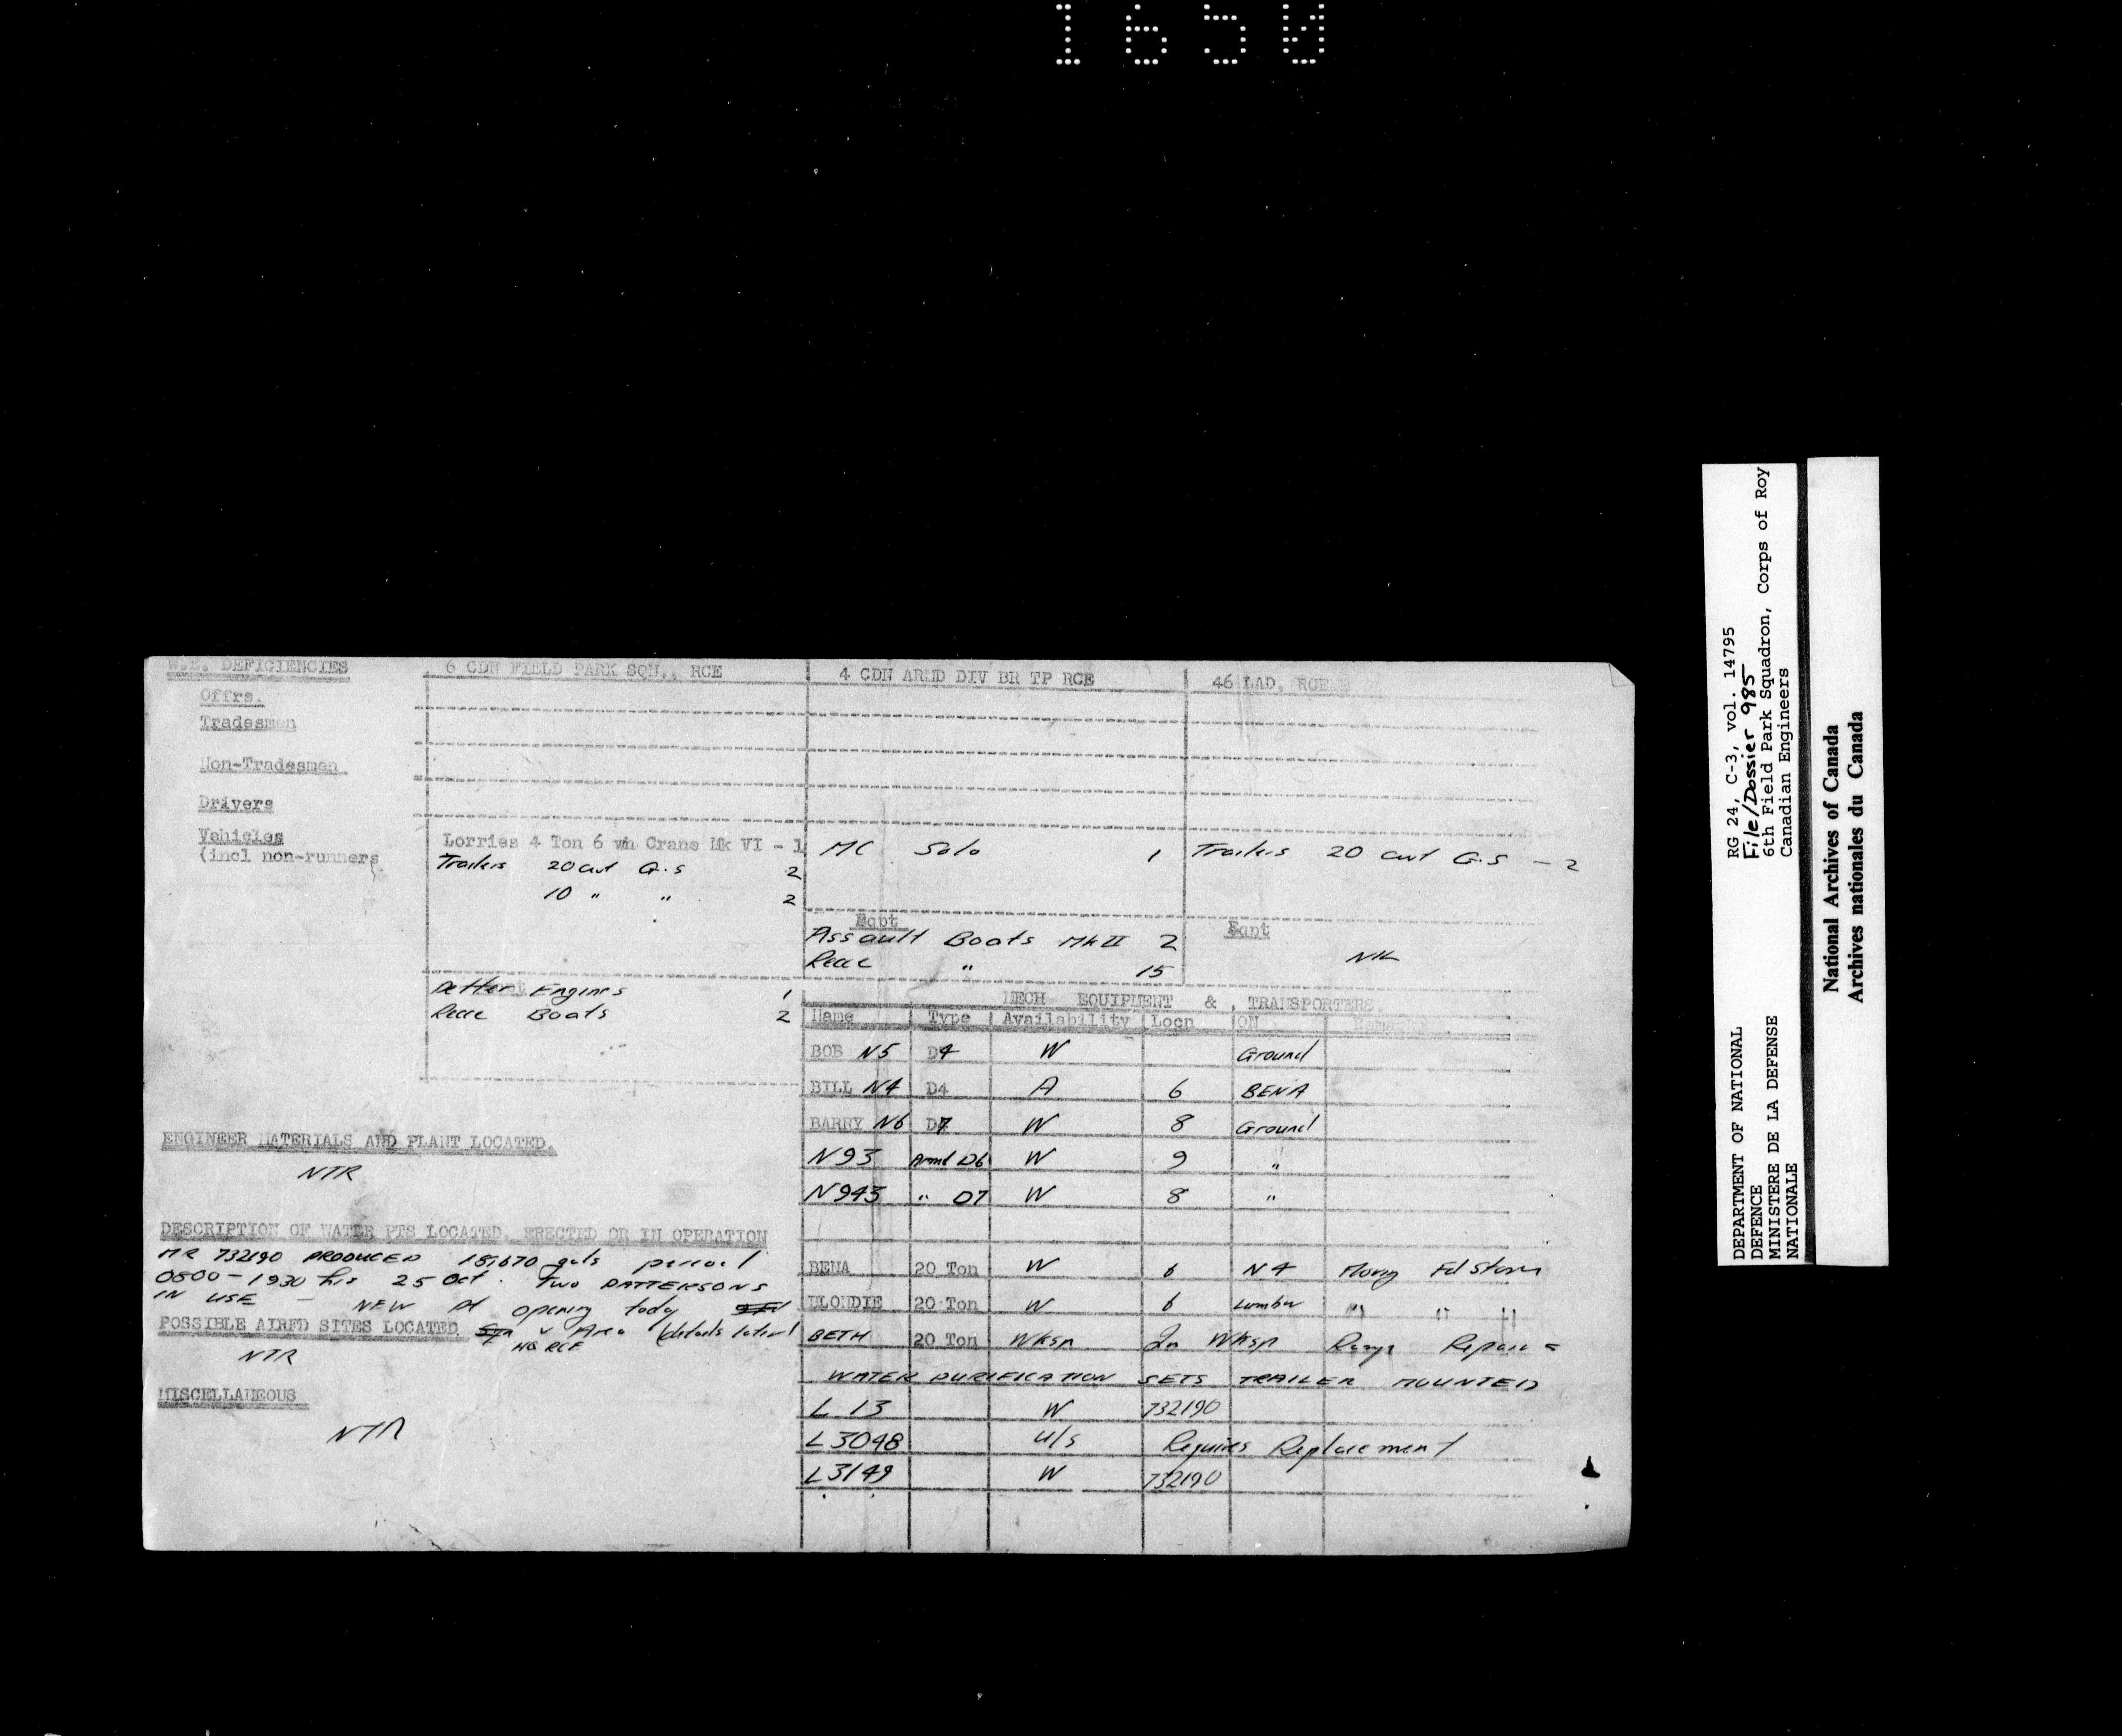 1650
W.E. DEFICIENCIES
Offrs.
Tradesmen
Non-Tradesmen
Drivers
Vehicles
(incl non-runners
6 CDN FIELD PARK SQN., RCE
Lorries 4 Ton 6 wh Crane Mk VI - 1
Trailers 20 cwt G.S 2
10 " " 2
Engines 1
Recce Boats 2
4 CDN ARMD DIV BR TP RCE
MC Solo 1
Eqpt
Assault Boats Mk II 2
Recce " 15
46 LAD, RCE
Trailers 20 cwt G.S - 2
Eqpt
NIL
ENGINEER MATERIALS AND PLANT LOCATED.
NTR
DESCRIPTION OF WATER PTS LOCATED, ERECTED OR IN OPERATION
MR 732190 PRODUCED 18,670 gals period
0800 - 1930 hrs 25 Oct. Two PATTERSONS
IN USE - NEW pt opening tody
Area (details later)
HQ RCE
POSSIBLE AIRFD SITES LOCATED
NTR
MISCELLANEOUS
NTR
MECH EQUIPMENT & TRANSPORTERS.
Name Type Availability Locn ON Remarks
BOB N5 D4 W Ground
BILL N4 D4 A 6 BENA
BARRY N6 D7 W 8 Ground
N93 Armd D6 W 9 "
N943 " D7 W 8 "
BENA 20 Ton W 6 N4 Moving Fd Stores
BLONDIE 20 Ton W 6 Lumber " " "
BETH 20 Ton Wksp In Wksp Ramp Repairs
WATER PURIFICATION SETS TRAILER MOUNTED
L 13 W 732190
L3048 U/S Requires Replacement
L3149 W 732190
RG 24, C-3, vol. 14795
File/Dossier 985
6th Field Park Squadron, Corps of Roy
Canadian Engineers
DEPARTMENT OF NATIONAL
DEFENCE
MINISTERE DE LA DEFENSE
NATIONALE
National Archives of Canada
Archives nationales du Canada